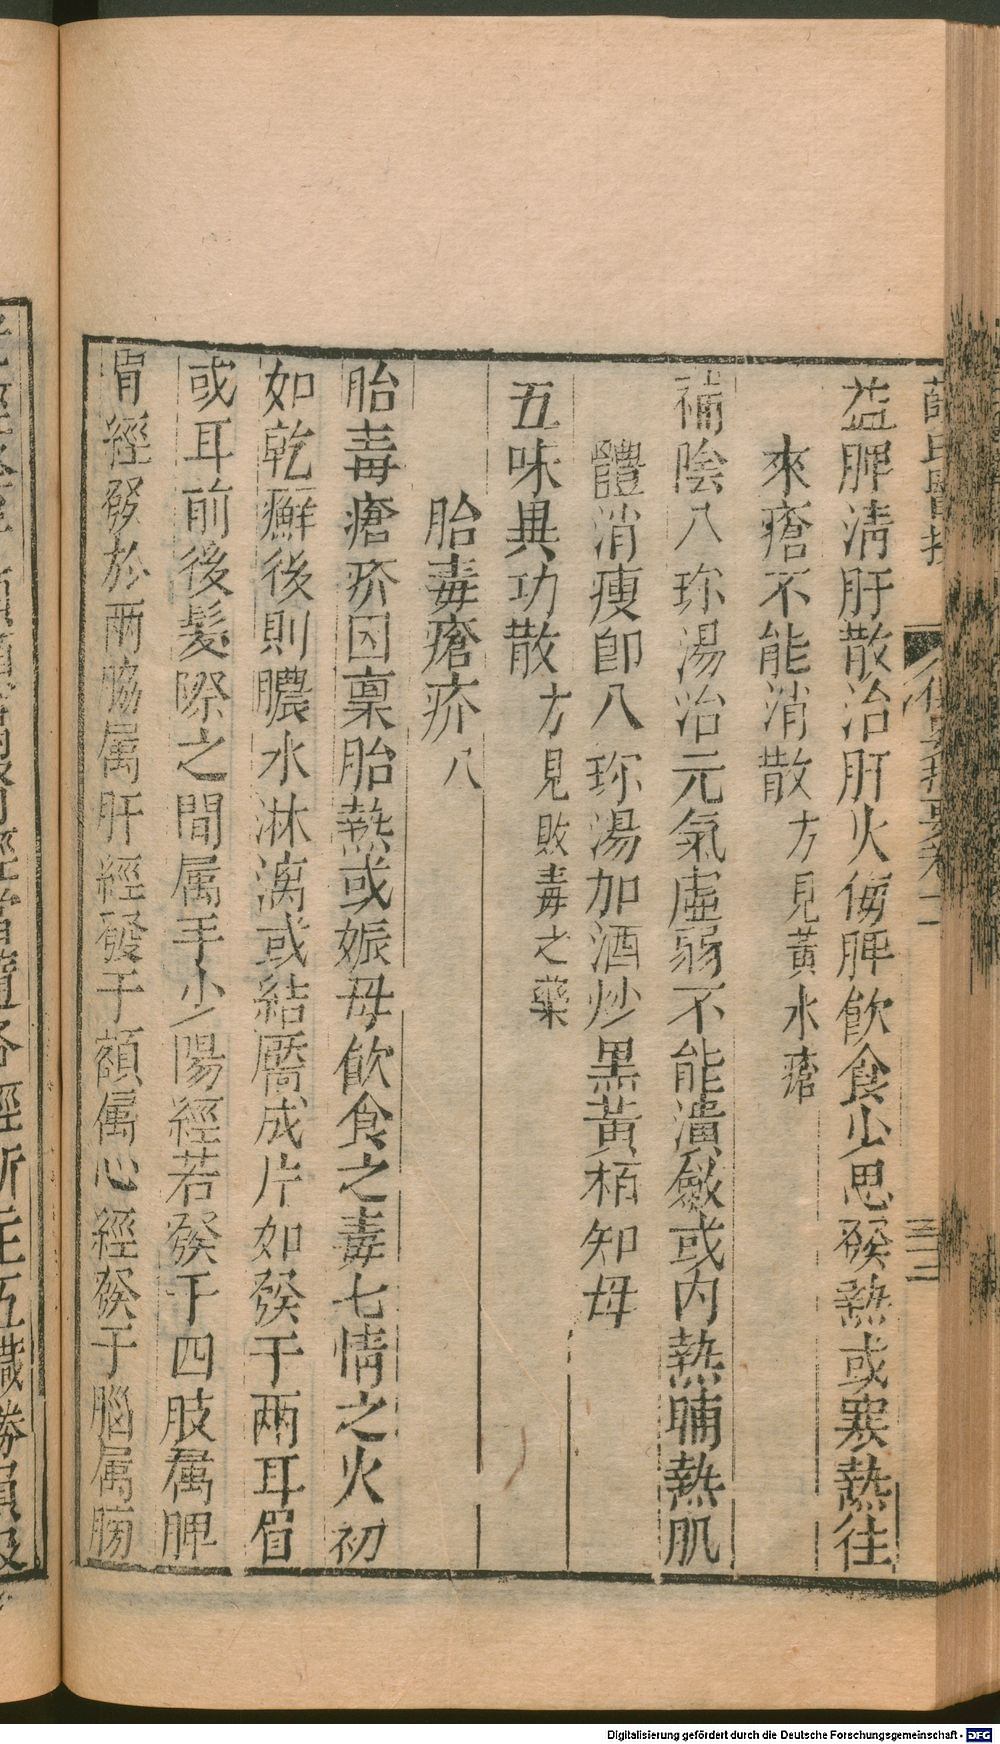 益脾清肝散治肝火侮脾飲食少思發熱或寒熱往
來瘡不能消散方見黃水瘡
補陰八珎湯治元氣虛弱不能潰斂或内熱晡熱肌
體消瘦即八珎湯加酒炒黑黃栢知母
五味異功散方見敗毒之藥
胎毒瘡疥八
胎毒瘡疥因稟胎熱或娠母飲食之毒七情之火初
如乾癬後則膿水淋漓或結靨成片如發于兩耳眉
或耳前後髮際之間属手少陽經若發于四肢属脾
胃經發於兩脇属肝經發于額属心經發于腦属膀
Digitalisierung gefördert durch die Deutsche Forschungsgemeinschaft - DFG